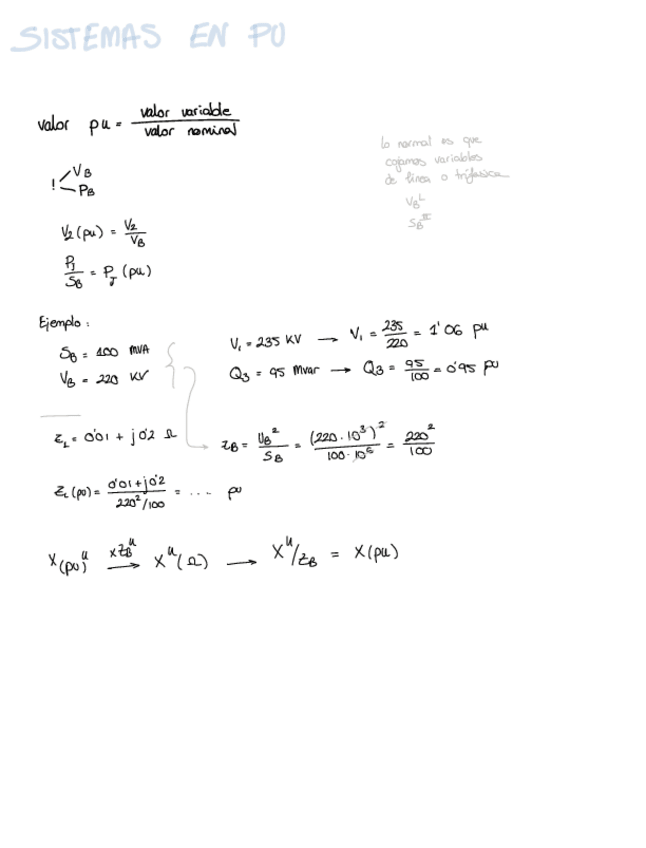 SISTEMAS EN PU
valor pu = valor variable / valor nominal
lo normal es que
cojamos variables
de línea o trifásica
V_B^L
S_B^III
! V_B
P_B
V₂ (pu) = V₂ / V_B
P_J / S_B = P_J (pu)
Ejemplo :
S_B = 100 MVA
V_B = 220 KV
V₁ = 235 KV → V₁ = 235/220 = 1'06 pu
Q₃ = 95 Mvar → Q₃ = 95/100 = 0'95 pu
Z_L = 0'01 + j0'2 Ω
Z_B = U_B² / S_B = (220·10³)² / 100·10⁶ = 220² / 100
Z_L (pu) = 0'01 + j0'2 / 220²/100 = .... pu
X(pu)^u xZ_B^u → X^u (Ω) → X^u/Z_B = X(pu)